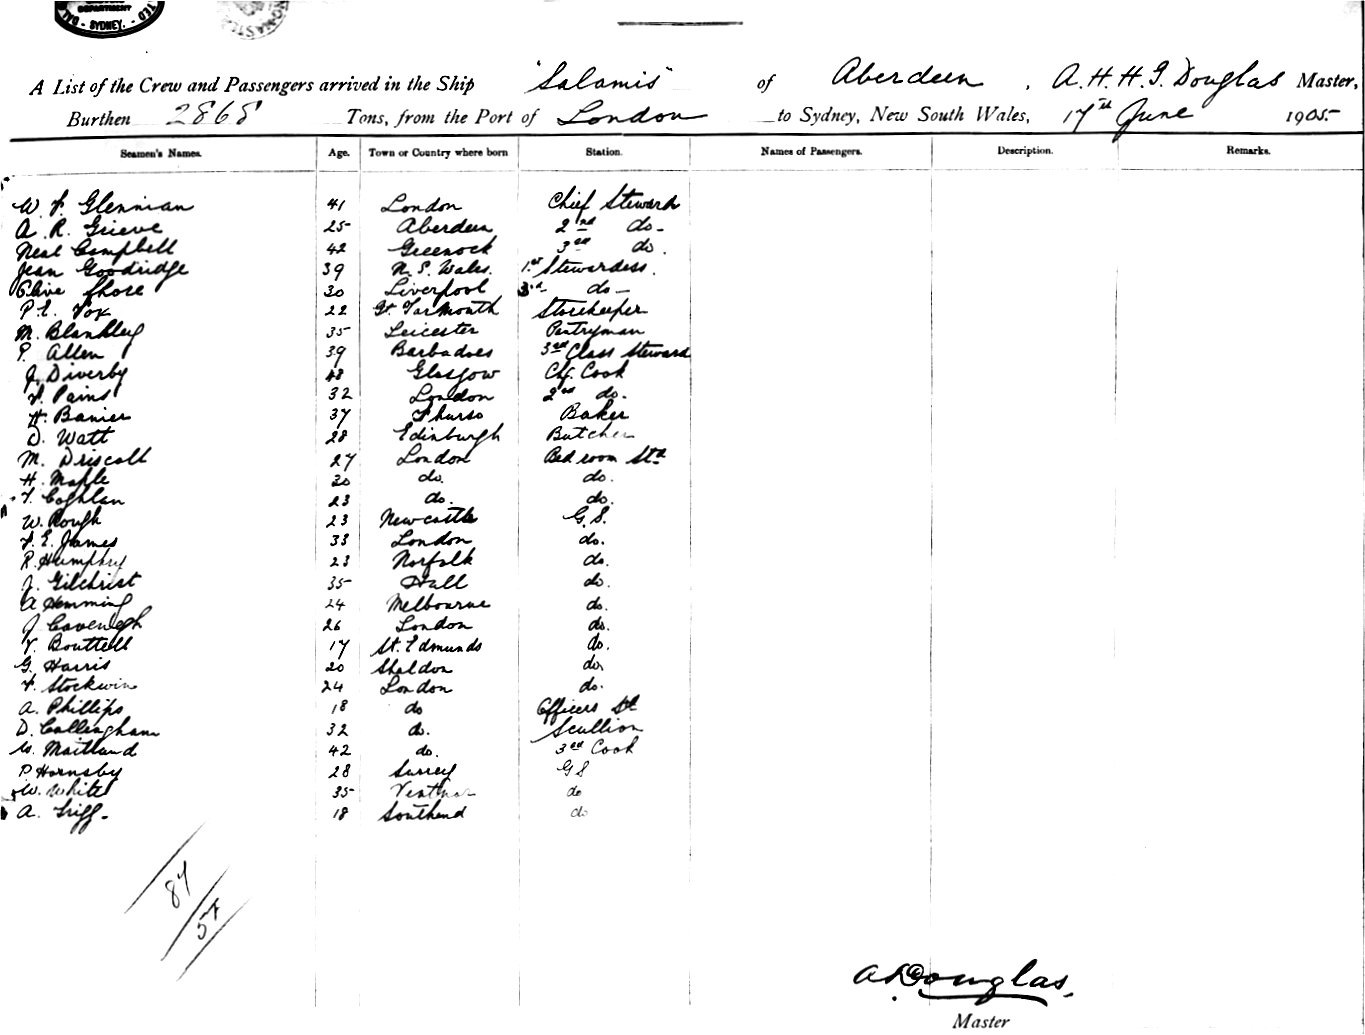 DEPARTMENT
SYDNEY.
A List of the Crew and Passengers arrived in the Ship "Salamis" of Aberdeen, A.H.H.G. Douglas Master,
Burthen 2868 Tons, from the Port of London to Sydney, New South Wales, 17th June 1905-
Seamen's Names. Age. Town or Country where born Station. Names of Passengers. Description. Remarks.
W. F. Glennian 41 London Chief Steward
A. R. Grieve 25 Aberdeen 2nd do-
Neal Campbell 42 Greenock 3rd do.
Jean Goodridge 39 N. S. Wales. 1st Stewardess.
Clive Shore 30 Liverpool 3rd do-
P. E. Fox 22 Gt. Yarmouth Storekeeper
M. Blankley 35 Leicester Pantryman
P. Allen 39 Barbadoes 3rd Class Steward
J. Diverby 48 Glasgow Chf. Cook
F. Pains 32 London 2nd do.
H. Banier 37 Thurso Baker
D. Watt 28 Edinburgh Butcher
M. Driscoll 27 London Bed room Std
H. Maple 30 do. do.
T. Coghlan 23 do. do.
W. Rough 23 Newcastle G.S.
F. E. James 33 London do.
R. Humphry 23 Norfolk do.
J. Gilchrist 35 Hull do.
A Hemming 24 Melbourne do.
J Cavenegh 26 London do.
V. Bouttell 17 St. Edmunds do.
G. Harris 20 Sheldon do.
F. Stockwin 24 London do.
A. Phillips 18 do Officers St
D. Callingham 32 do. Scullion
W. Maitland 42 do. 3rd Cook
P Hornsby 28 Surrey G S
W. White 35 Ventnor do
A. Griff. 18 Southend do
87
57
A Douglas.
Master